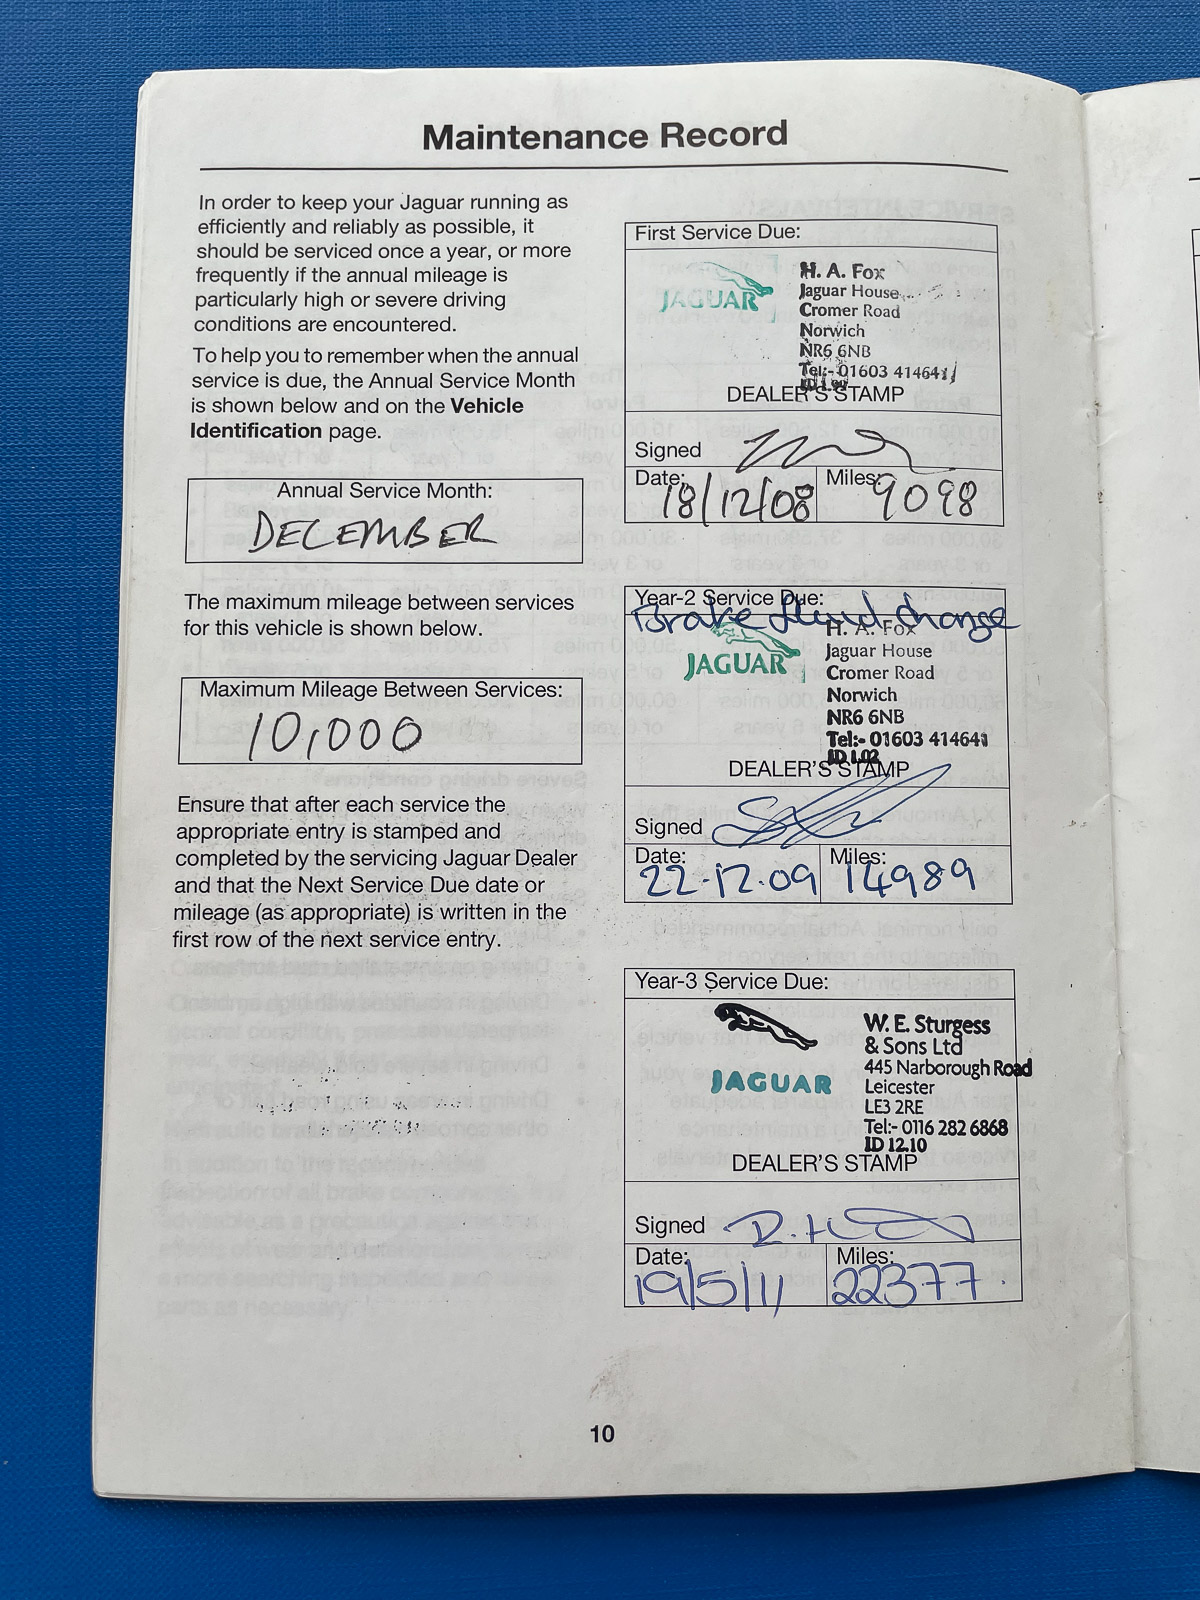 Maintenance Record
In order to keep your Jaguar running as
efficiently and reliably as possible, it
should be serviced once a year, or more
frequently if the annual mileage is
particularly high or severe driving
conditions are encountered.
To help you to remember when the annual
service is due, the Annual Service Month
is shown below and on the Vehicle
Identification page.
Annual Service Month:
DECEMBER
The maximum mileage between services
for this vehicle is shown below.
Maximum Mileage Between Services:
10,000
Ensure that after each service the
appropriate entry is stamped and
completed by the servicing Jaguar Dealer
and that the Next Service Due date or
mileage (as appropriate) is written in the
first row of the next service entry.
First Service Due:
JAGUAR
H. A. Fox
Jaguar House
Cromer Road
Norwich
NR6 6NB
Tel:- 01603 414641
DEALER'S STAMP
Signed
Date: 18/12/08 Miles: 9098
Year-2 Service Due:
Brake fluid change
JAGUAR
H. A. Fox
Jaguar House
Cromer Road
Norwich
NR6 6NB
Tel:- 01603 414641
ID 1.02
DEALER'S STAMP
Signed
Date: 22.12.09 Miles: 14989
Year-3 Service Due:
JAGUAR
W. E. Sturgess
& Sons Ltd
445 Narborough Road
Leicester
LE3 2RE
Tel:- 0116 282 6868
ID 12.10
DEALER'S STAMP
Signed
Date: 19/5/11 Miles: 22377
10